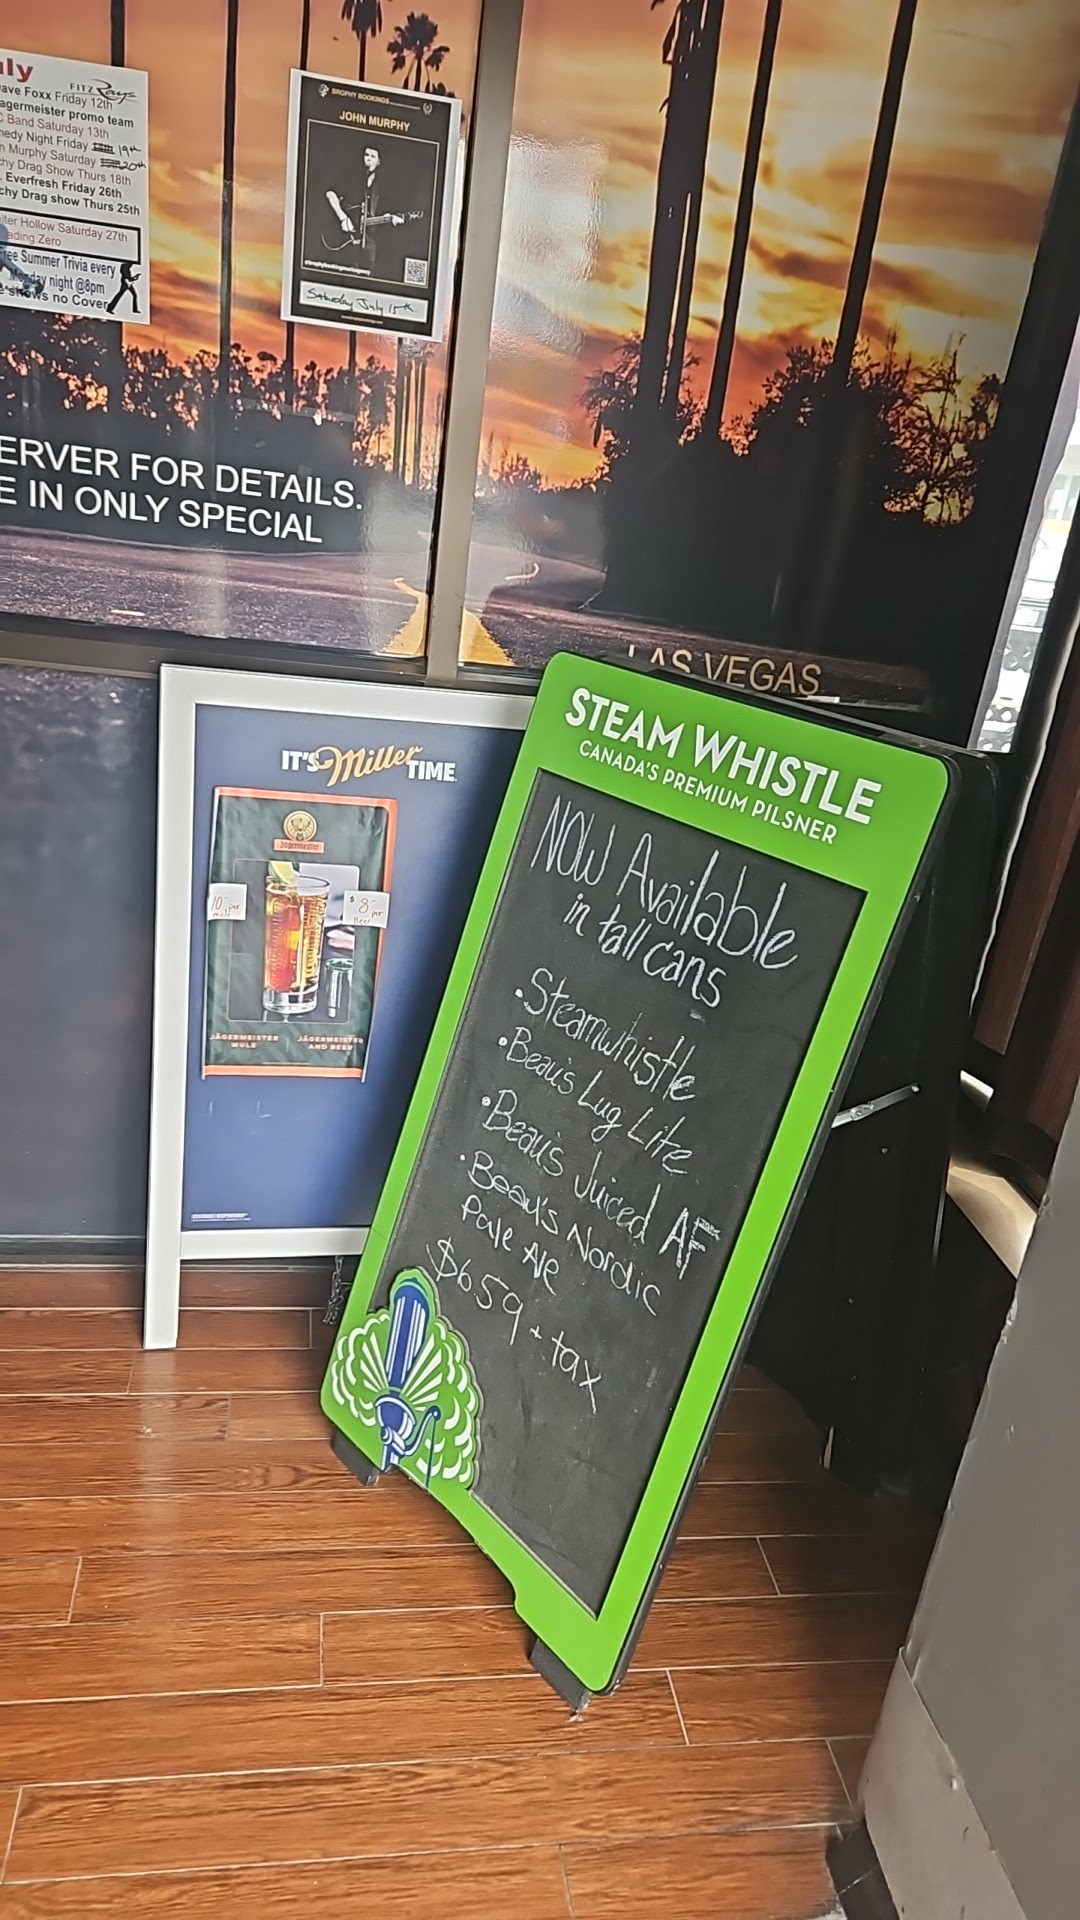 FITZ Rays
ave Foxx Friday 12th
agermeister promo team
C Band Saturday 13th
nedy Night Friday 19th
n Murphy Saturday 20th
chy Drag Show Thurs 18th
. Everfresh Friday 26th
chy Drag show Thurs 25th
Hollow Saturday 27th
ading Zero
ree Summer Trivia every
Monday night @8pm
shows no Cover
BROPHY BOOKINGS
JOHN MURPHY
Saturday July 15th
ERVER FOR DETAILS.
E IN ONLY SPECIAL
LAS VEGAS
IT'S Miller TIME
Jägermeister
10- per mule
$8- per Beer
JÄGERMEISTER MULE
JÄGERMEISTER AND BEER
STEAM WHISTLE
CANADA'S PREMIUM PILSNER
NOW Available
in tall cans
• Steamwhistle
• Beau's Lug Lite
• Beau's Juiced AF
• Beau's Nordic
Pale Ale
$659 + tax